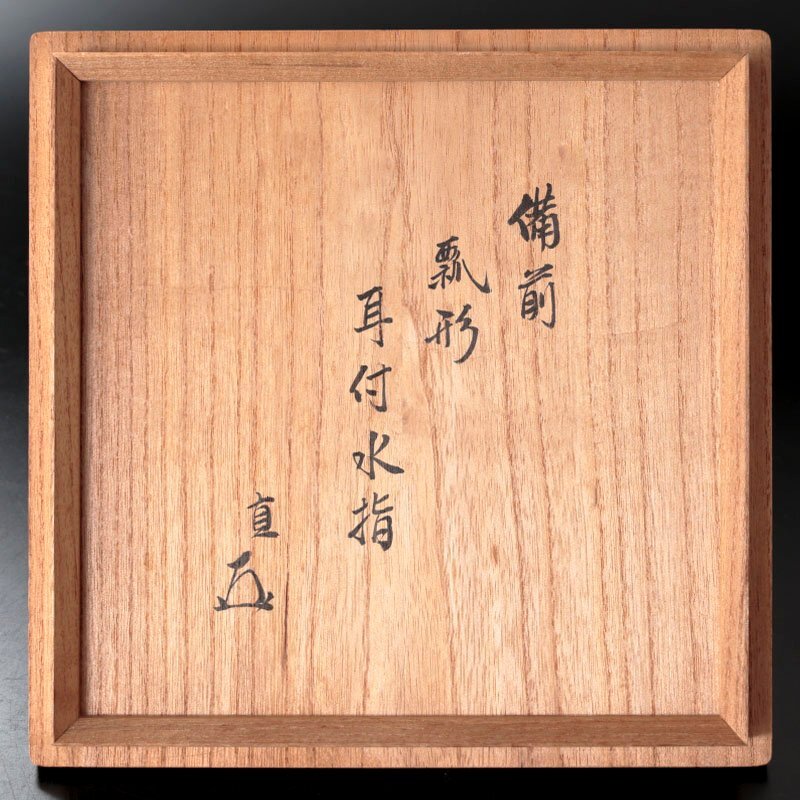 備前
瓢形
耳付水指
直